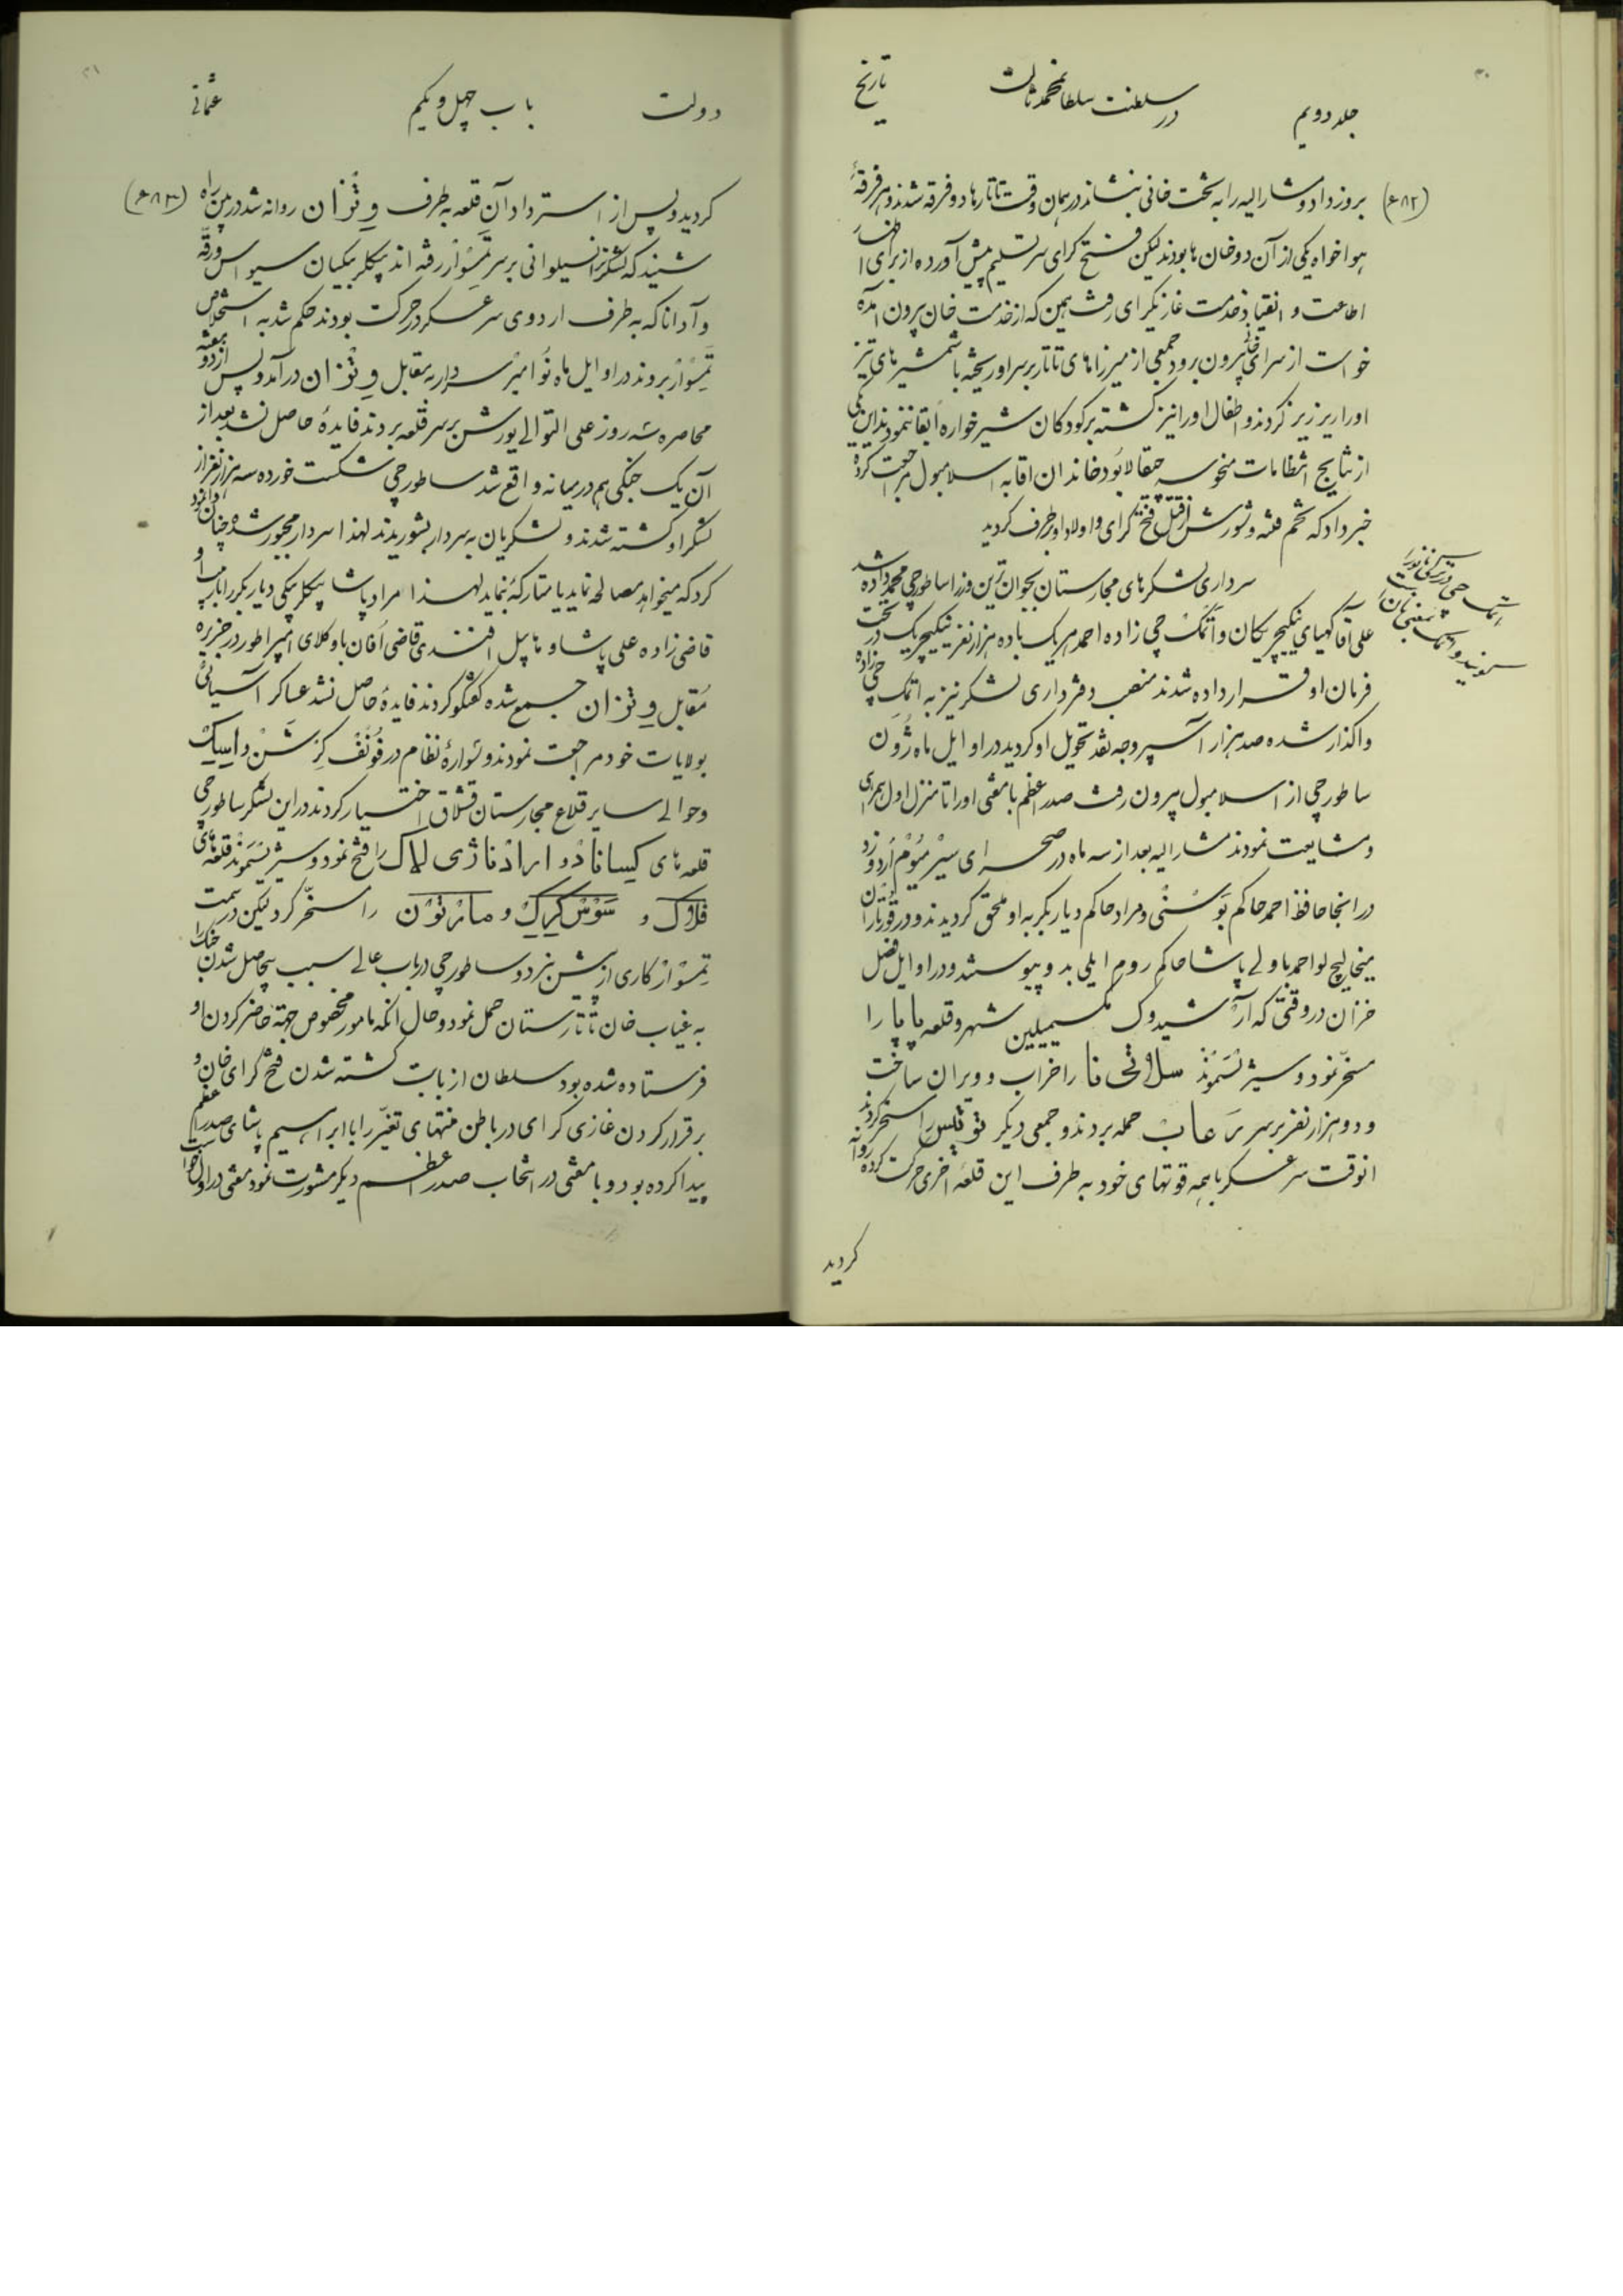 جلد دویم
در سلطنت سلطان محمد ثالث
تاریخ
(۶۸۲)
بروز داد و مشارالیه را به تخت خانی بنشاند در همان وقت تاتارها دو فرقه شدند و هر فرقهٔ
هواخواه یکی از آن دو خان ها بودند لیکن فتح کرای سر تسلیم پیش آورده از برای اظهار
اطاعت و انقیاد بخدمت غازیکرای رفت همین که از خدمت خان بیرون آمده
خواست از سرای خانی بیرون برود جمعی از میرزاهای تاتار بر سر او ریخته با شمشیرهای تیز
او را ریز ریز کردند و اطفال او را نیز کشته بر کودکان شیرخواره ابقا ننمودند این یکی
از نتایج انتظامات منحوسه چقالا بود خاندان اقا به اسلامبول مراجعت کرده
خبر داد که تخم فتنه و شورش از قتل فتح کرای و اولاد او برطرف کردید
سرداری لشکرهای مجارستان بجوان ترین وزرا ساطورچی محمد داده شد
علی آقا کهیای ینکیچریکان و اتمک چی زاده احمد هریک با ده هزار نفر ینکیچریک در تحت
فرمان او قرار داده شدند منصب دفترداری لشکر نیز به اتمک چی زاده
واکذار شده صد هزار آسپر وجه نقد تحویل او کردید در اوایل ماه ژون
ساطورچی از اسلامبول بیرون رفت صدر اعظم با مفتی او را تا منزل اول همراهی
و مشایعت نمودند مشارالیه بعد از سه ماه در صحرای سیرمیوم اردو زد
در اینجا حافظ احمد حاکم بوسنی و مراد حاکم دیاربکر به او ملحق کردیدند و در
میخالیچ لو احمد با ولی پاشا حاکم روم ایلی بدو پیوستند و در اوایل فصل
خزان در وقتی که آرشیدوک مکسیمیلین شهر و قلعه پاپا را
مسخر نمود و سیژیسموند سلاتی نا را خراب و ویران ساخت
و دو هزار نفر بر سر حمله بردند و جمعی دیکر را مسخر کردند
انوقت سرعسکر با همه قوتهای خود به طرف این قلعه اخری حرکت کرده روانه
کردید
اتمک چی در ترکی نانوا را
کویند و اتمک بمعنی نان است
دولت
باب چهل و یکم
عثمانی
(۶۸۳)
کردید و پس از استرداد آن قلعه به طرف وتزان روانه شد در بین راه
شنید که لشکر ترانسیلوانی بر سر تمسوار رفته اند بیکلربیکیان سیواس و رقه
و آدانا که به طرف اردوی سرعسکر در حرکت بودند حکم شد به استخلاص
تمسوار بروند در اوایل ماه نوامبر سردار به مقابل وتزان در آمد و پس از دو هفته
محاصره سه روز علی التوالی یورش بر سر قلعه بردند فایدهٔ حاصل نشد بعد از
آن یک جنکی هم در میانه واقع شد ساطورچی شکست خورده سه هزار نفر از
لشکر او کشته شدند و لشکریان به سردار بشوریدند لهذا سردار مجبور شده چنان وانمود
کرد که میخواهد مصالحه نماید یا متارکه نماید لهذا مراد پاشا بیکلربیکی دیاربکر را با
قاضی زاده علی پاشا و هابیل افندی قاضی اُفان با وکلای امپراطور در جزیره
مقابل وتزان جمع شده کفتکو کردند فایدهٔ حاصل نشد عساکر آسیائی
بولایات خود مراجعت نمودند و سوارهٔ نظام در فونف کرشن و اسیک
و حوالی سایر قلاع مجارستان قشلاق اختیار کردند در این لشکر ساطورچی
قلعه های کسانادو ارادناژی لاک را فتح نمود و سیژیسموند قلعه های
فلاک و سوس کرک و مارتون را مسخر کرد لیکن در سمت
تمسوار کاری از پیش نبرد و ساطورچی در باب عالی سبب بیحاصل شدن جنک را
به غیاب خان تاتارستان حمل نمود و حال انکه مامور مخصوص بجهة حاضر کردن او
فرستاده شده بود سلطان از بابت کشته شدن فتح کرای خان و
برقرار کردن غازی کرای در باطن منتهای تغیر را با ابراهیم پاشای صدر اعظم
پیدا کرده بود و با مفتی در انتخاب صدر اعظم دیکر مشورت نمود مفتی در اول